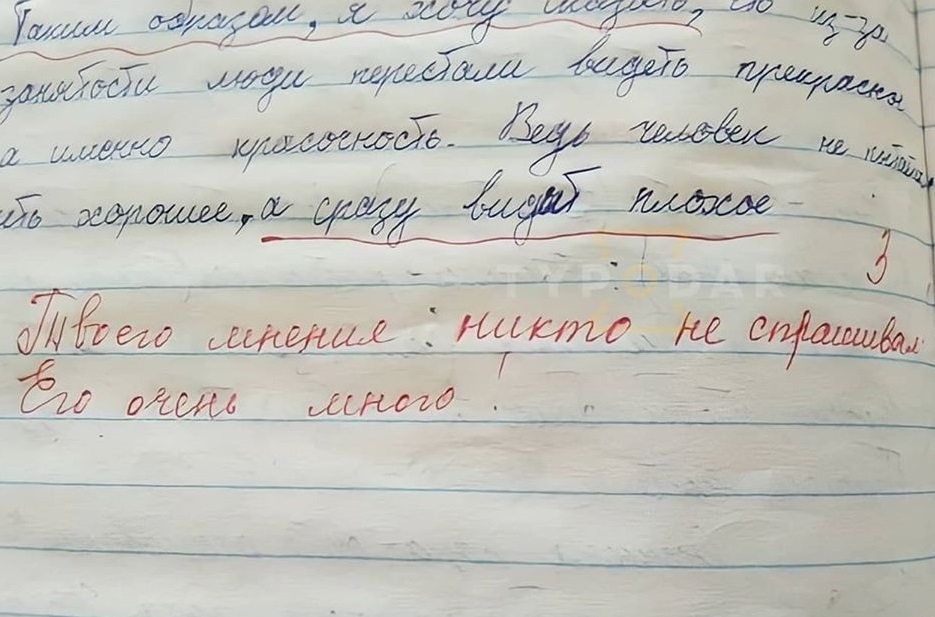 Таким образом, я хочу сказать, что из-за
занятости люди перестали видеть прекрасное
а именно красочность. Ведь человек не пытает
ить хорошее, а сразу видит плохое
3
TYPODAR
Твоего мнения никто не спрашивал
Его очень много